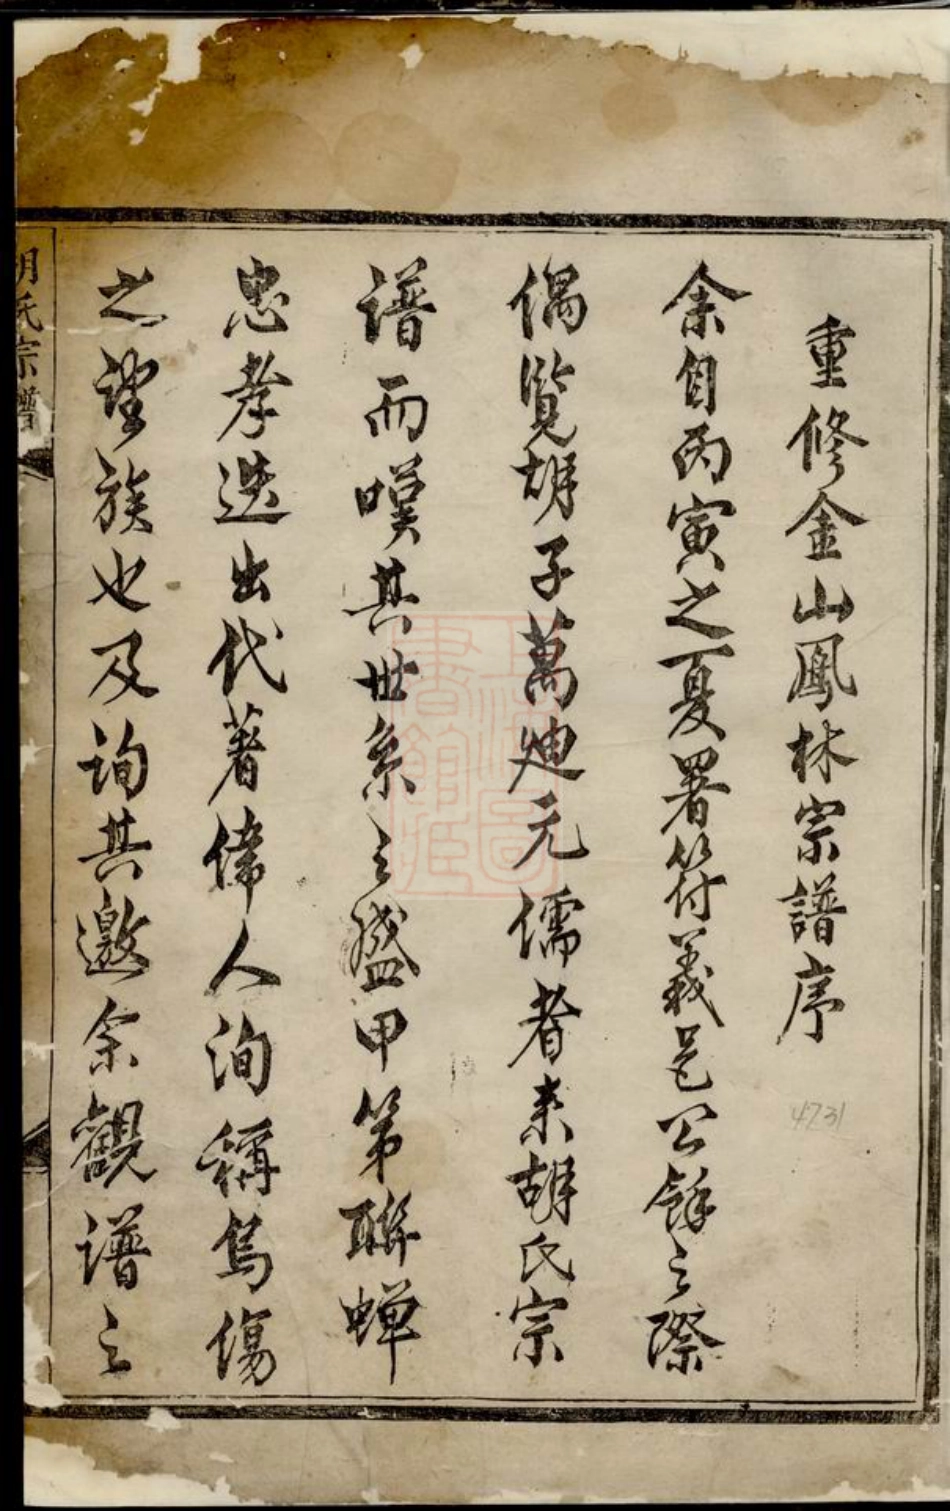 重修金山鳳林宗譜序
余自丙寅之夏署符義邑公餘之際
偶覽胡子萬迪元儒者來胡氏宗
譜而嘆其世系之盛甲第聯蟬
忠孝迭出代著偉人洵稱烏傷
之望族也及詢其邀余觀譜之
胡氏宗譜
4731
上海圖書館藏